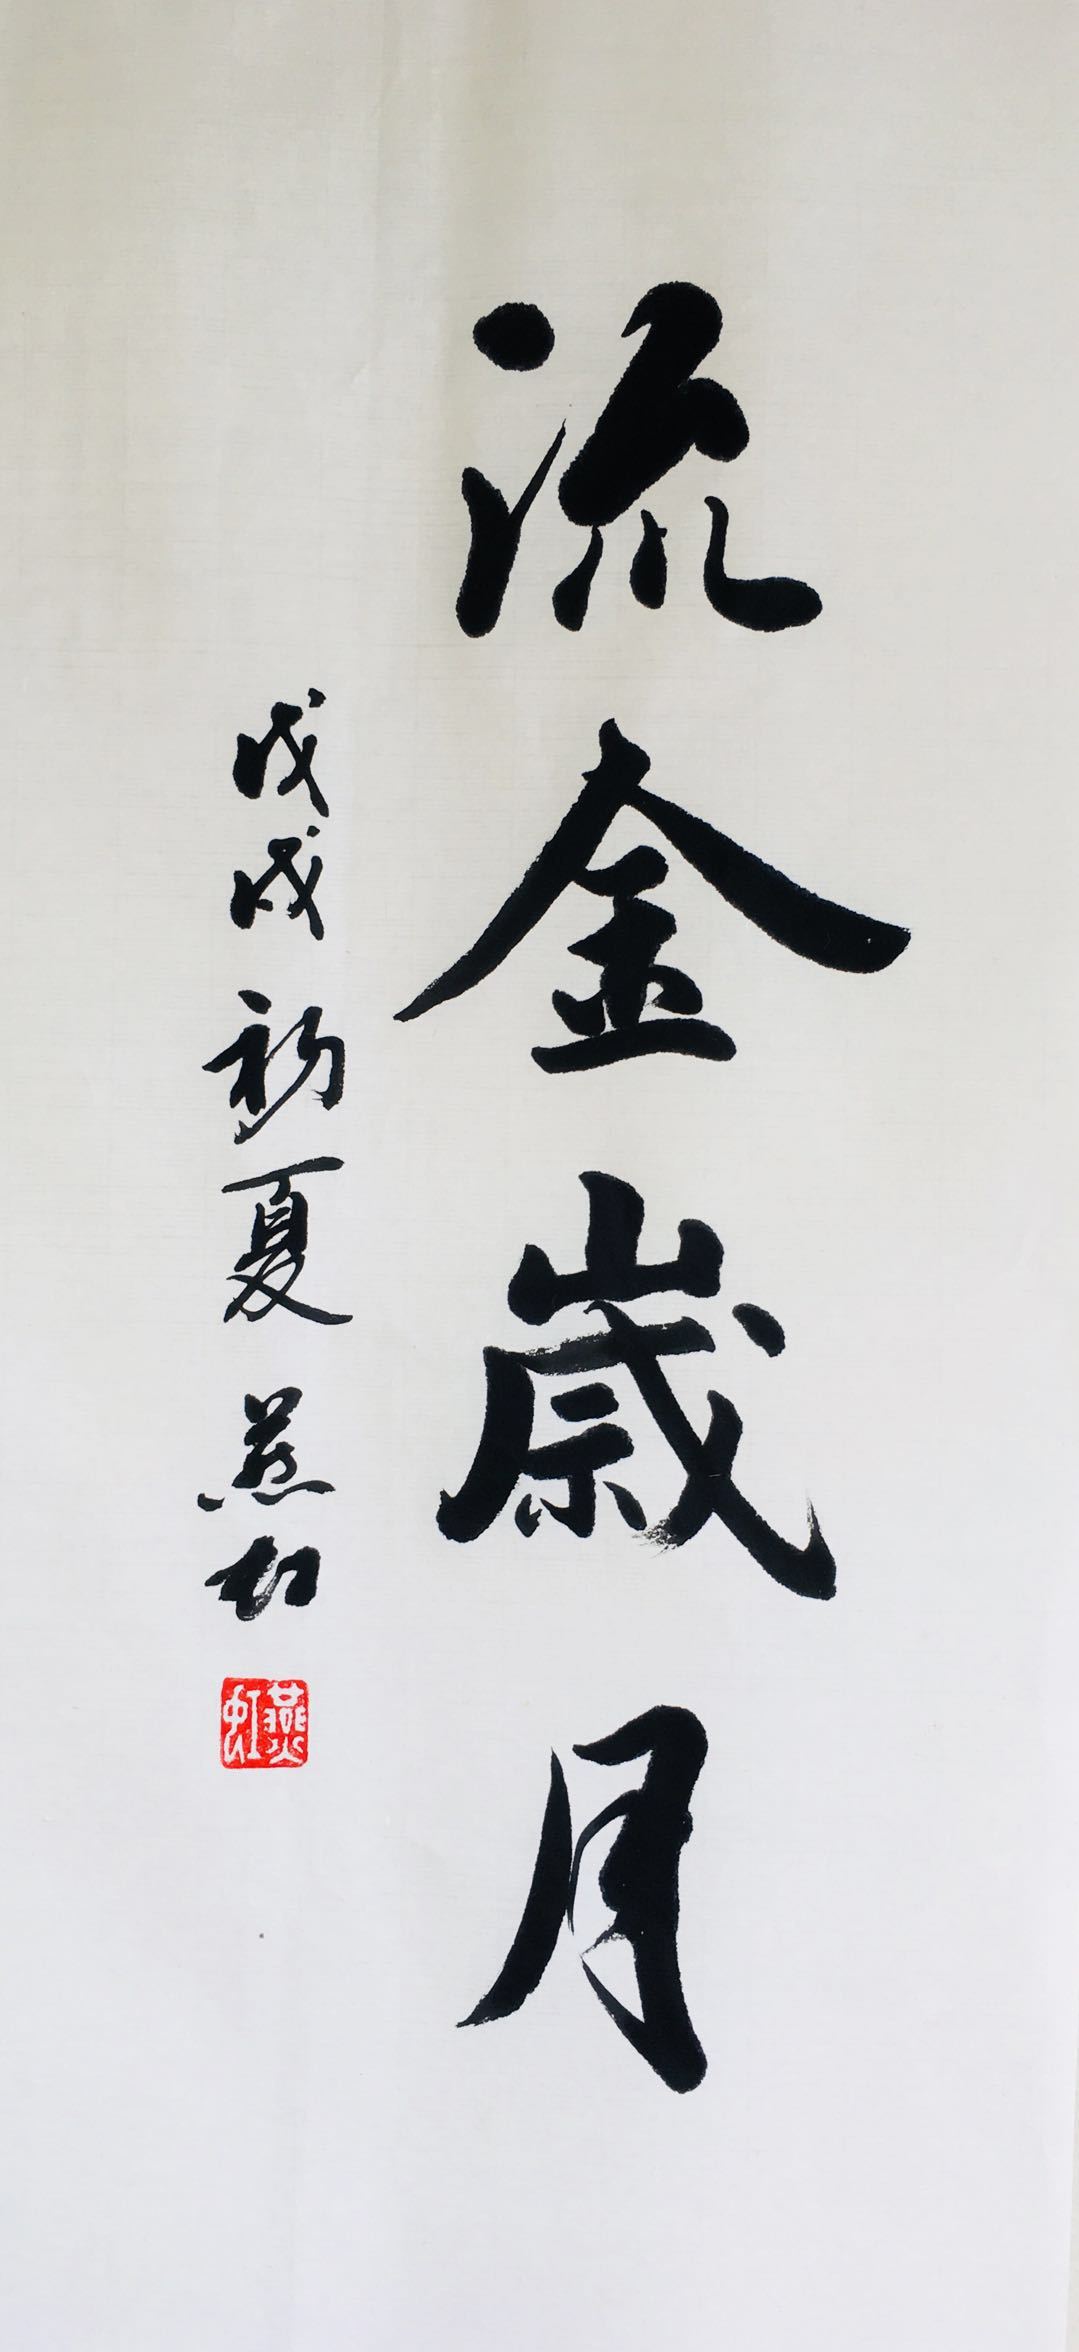 流金歳月
戊戌初夏燕虹
燕虹